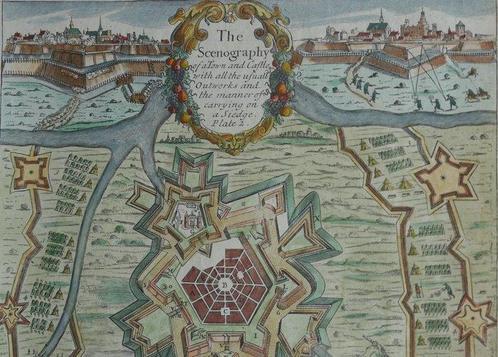 The
Scenography
of a Town and Castle,
with all the usuall
Outworks and
the manner of
carrying on
a Siedge.
Plate 2.
B
C